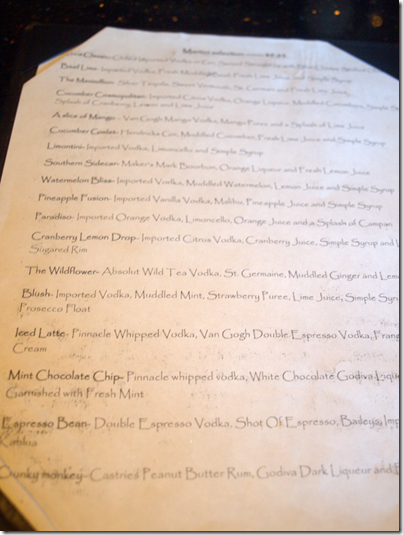 Martini selection
Imported Vodka or Gin,
Basil Lime- Imported Vodka, Fresh Muddled Basil, Fresh Lime Juice and Simple Syrup
The Manzellan- Silver Tequila, Sweet Vermouth, St. Germain and Fresh Lime Juice
Cucumber Cosmopolitan- Imported Citrus Vodka, Orange Liqueur, Muddled Cucumbers, Simple
Splash of Cranberry, Lemon and Lime Juice
A slice of Mango - Van Gogh Mango Vodka, Mango Puree and a Splash of Lime Juice
Cucumber Cooler- Hendricks Gin, Muddled Cucumber, Fresh Lime Juice and Simple Syrup
Limontini- Imported Vodka, Limoncello and Simple Syrup
Southern Sidecar- Maker's Mark Bourbon, Orange Liqueur and Fresh Lemon Juice
Watermelon Bliss- Imported Vodka, Muddled Watermelon, Lemon Juice and Simple Syrup
Pineapple Fusion- Imported Vanilla Vodka, Malibu, Pineapple Juice and Simple Syrup
Paradiso- Imported Orange Vodka, Limoncello, Orange Juice and a Splash of Campari
Cranberry Lemon Drop- Imported Citrus Vodka, Cranberry Juice, Simple Syrup and L
Sugared Rim
The Wildflower- Absolut Wild Tea Vodka, St. Germaine, Muddled Ginger and Lem
Blush- Imported Vodka, Muddled Mint, Strawberry Puree, Lime Juice, Simple Syru
Prosecco Float
Iced Latte- Pinnacle Whipped Vodka, Van Gogh Double Espresso Vodka, Frang
Cream
Mint Chocolate Chip- Pinnacle whipped vodka, White Chocolate Godiva Lique
Garnished with Fresh Mint
Espresso Bean- Double Espresso Vodka, Shot Of Espresso, Baileys Imp
Kahlua
Chunky monkey- Castries Peanut Butter Rum, Godiva Dark Liqueur and